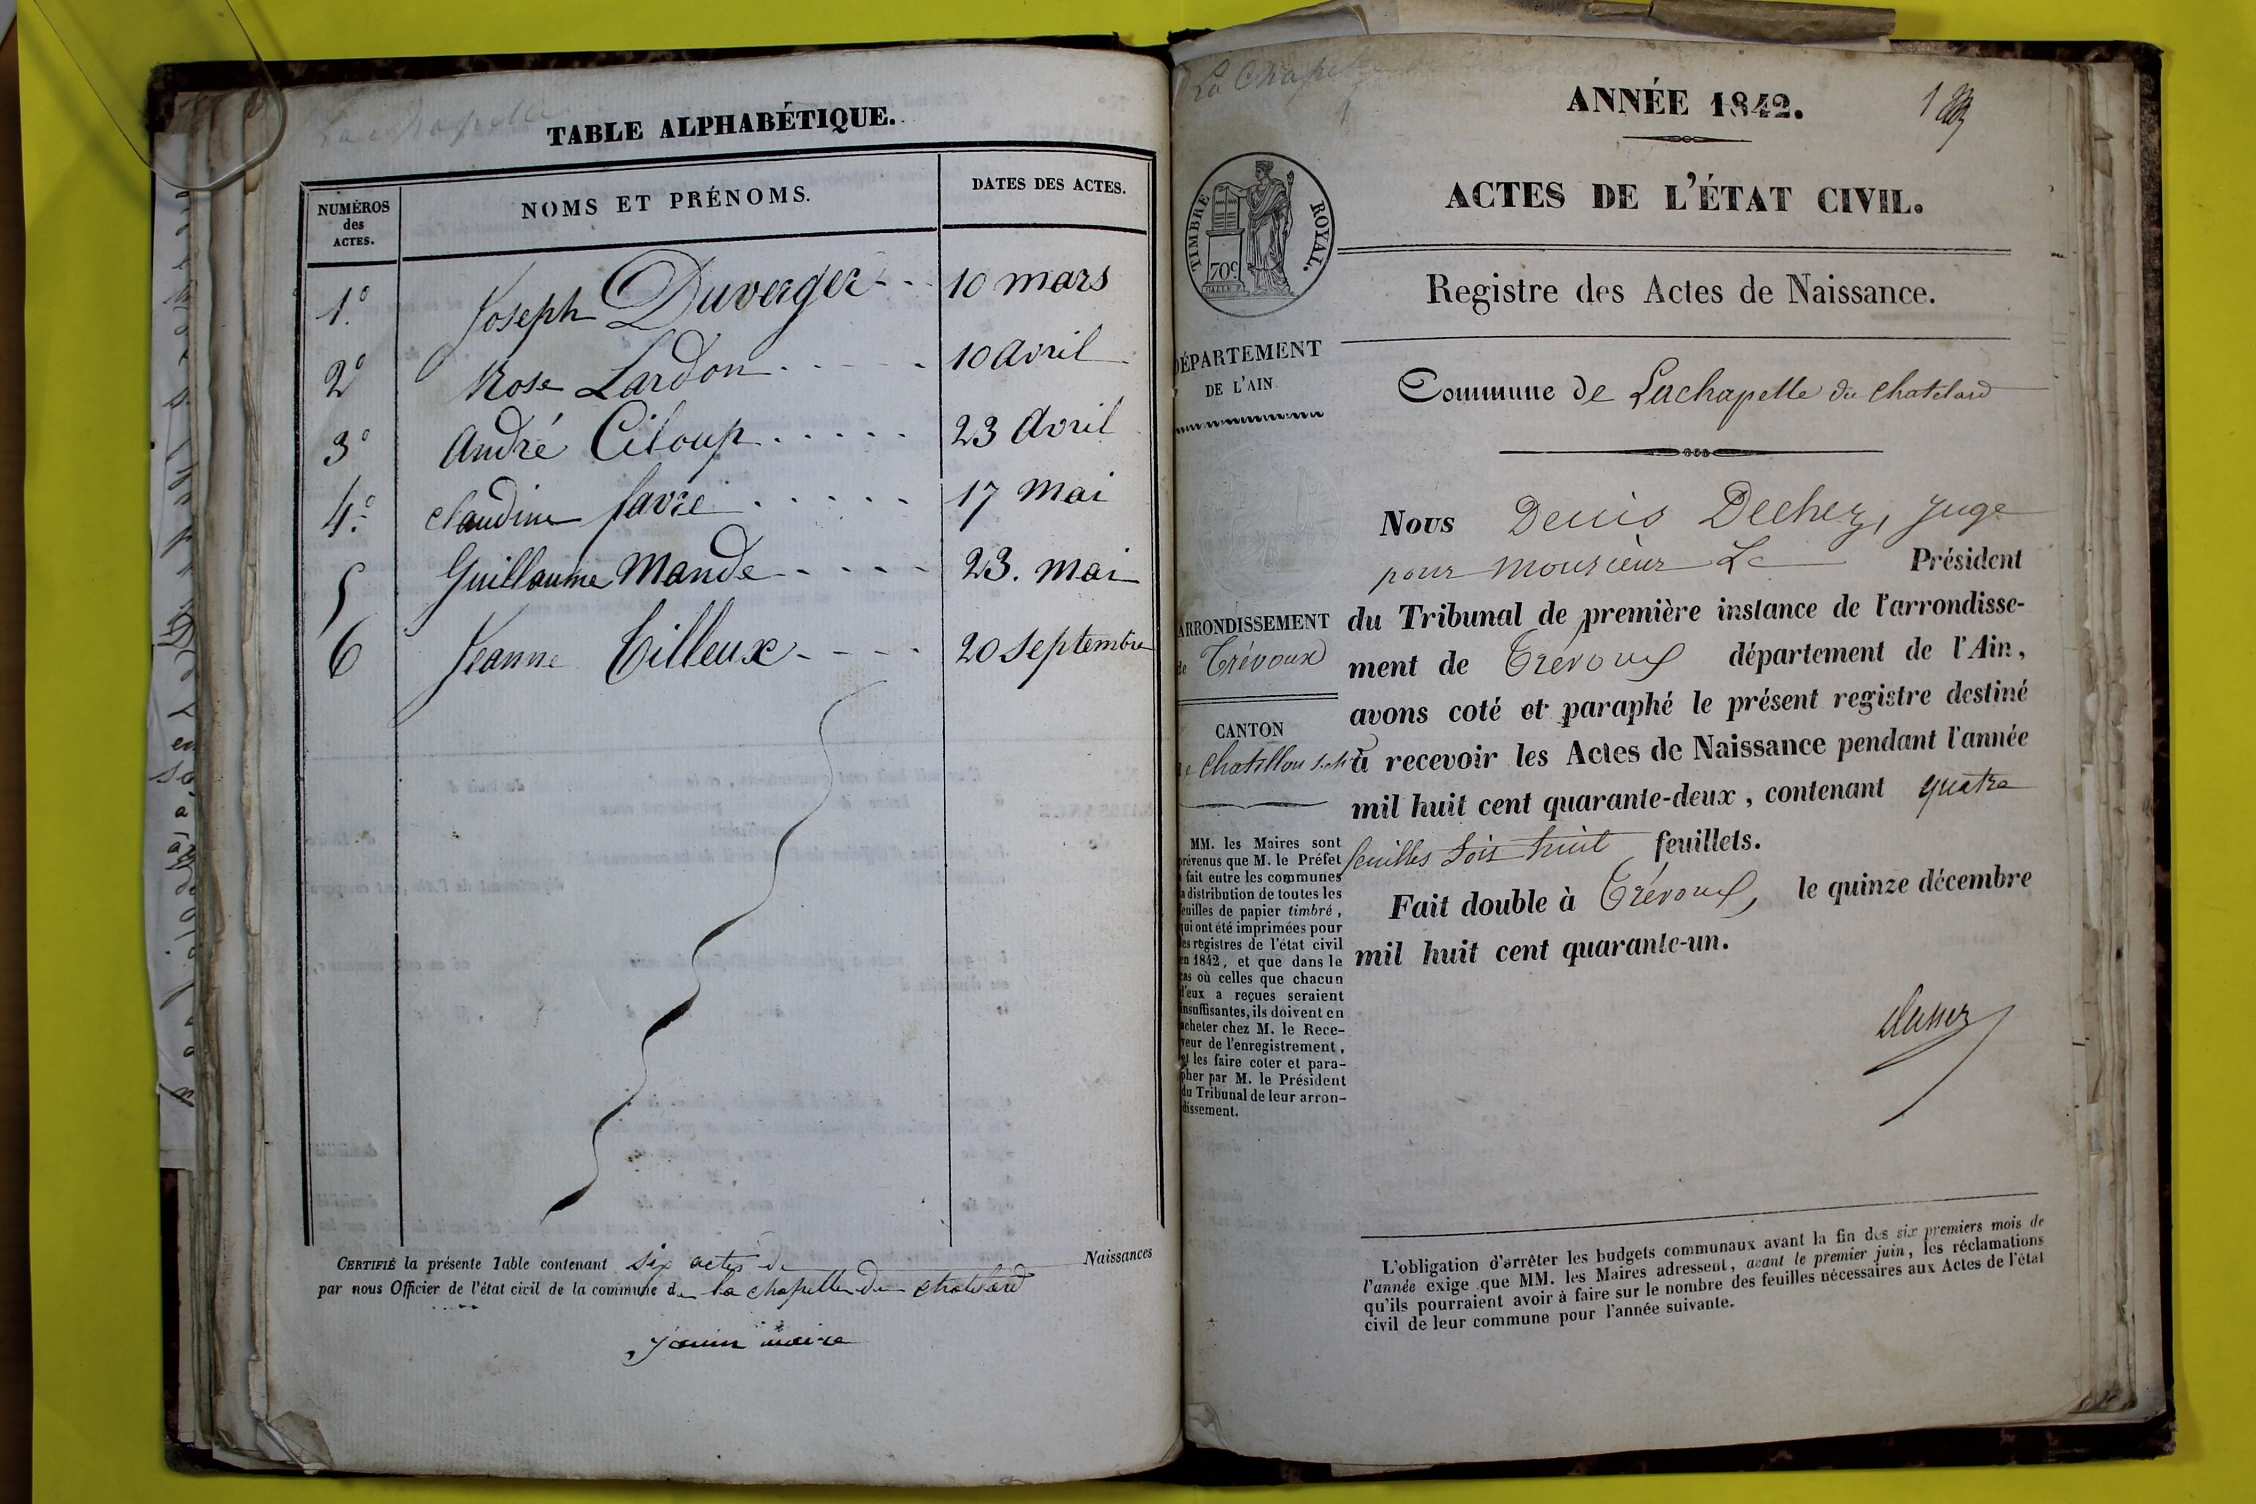 La chapelle
TABLE ALPHABÉTIQUE.
NUMÉROS des ACTES.
NOMS ET PRÉNOMS.
DATES DES ACTES.
1° Joseph Duverger 10 mars
2° Rose Lardon 10 avril
3° André Ciloup 23 avril
4° Claudine favre 17 mai
5 Guillaume Mande 23. mai
6 Jeanne Tilleux 20 septembre
CERTIFIÉ la présente Table contenant six actes de Naissances
par nous Officier de l'état civil de la commune de la chapelle du chatelard
Janin maire
La Chapelle
ANNÉE 1842.
1
ACTES DE L'ÉTAT CIVIL.
TIMBRE ROYAL.
70c
Registre des Actes de Naissance.
DÉPARTEMENT
DE L'AIN.
Commune de Lachapelle du chatelard
Nous Denis Dechez, juge
pour monsieur Le Président
ARRONDISSEMENT
de Trévoux
CANTON
de Chatillon
du Tribunal de première instance de l'arrondisse-
ment de Trévoux département de l'Ain,
avons coté et paraphé le présent registre destiné
à recevoir les Actes de Naissance pendant l'année
mil huit cent quarante-deux, contenant quatre
feuilles soit huit feuillets.
Fait double à Trévoux, le quinze décembre
mil huit cent quarante-un.
MM. les Maires sont
prévenus que M. le Préfet
a fait entre les communes
la distribution de toutes les
feuilles de papier timbré,
qui ont été imprimées pour
les registres de l'état civil
en 1842, et que dans le
cas où celles que chacun
d'eux a reçues seraient
insuffisantes, ils doivent en
acheter chez M. le Rece-
veur de l'enregistrement,
et les faire coter et para-
pher par M. le Président
du Tribunal de leur arron-
dissement.
L'obligation d'arrêter les budgets communaux avant la fin des six premiers mois de
l'année exige que MM. les Maires adressent, avant le premier juin, les réclamations
qu'ils pourraient avoir à faire sur le nombre des feuilles nécessaires aux Actes de l'état
civil de leur commune pour l'année suivante.